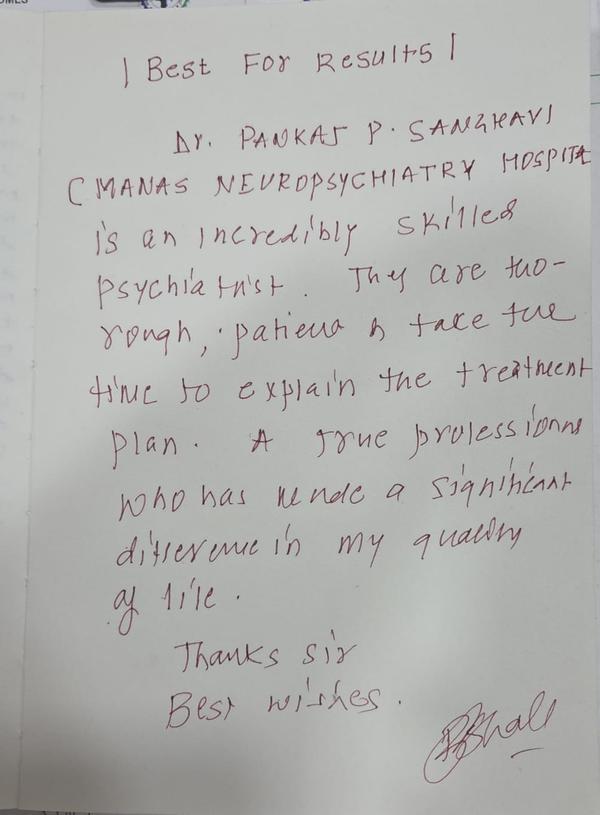 | Best For Results |
Dr. PANKAJ P. SANGHAVI
( MANAS NEUROPSYCHIATRY HOSPITA
is an incredibly skilled
psychiatrist. They are tho-
rough, patient & take the
time to explain the treatment
plan. A true professional
who has made a significant
difference in my quality
of life.
Thanks sir
Best wishes.